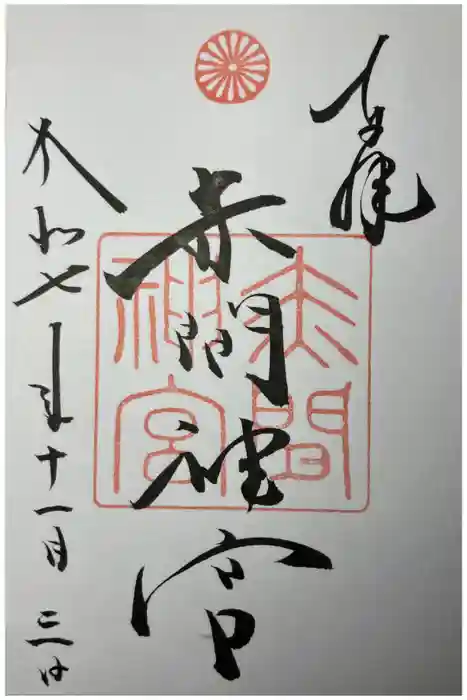 奉拝
赤間神宮
赤間神宮
令和七年十一月三日